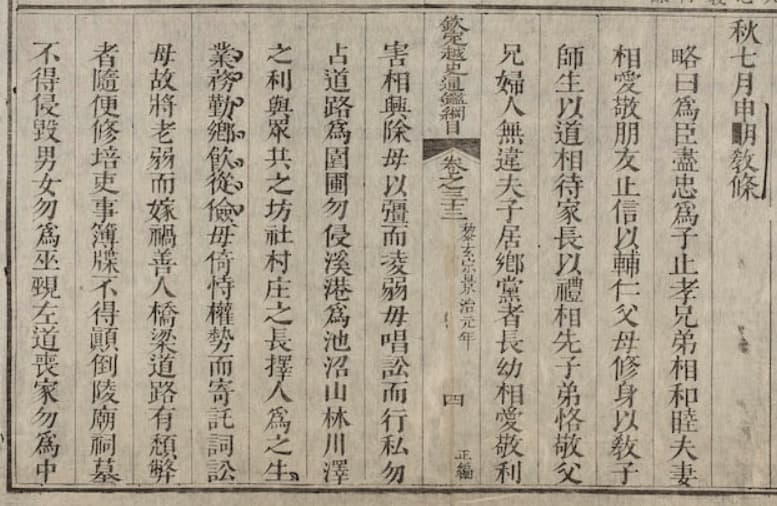 秋七月申明敎條
略曰爲臣盡忠爲子止孝兄弟相和睦夫妻
相愛敬朋友止信以輔仁父母修身以敎子
師生以道相待家長以禮相先子弟恪敬父
兄婦人無違夫子居鄉黨者長幼相愛敬利
欽定越史通鑑綱目 卷之三十三 黎玄宗景治元年 四 正編
害相興除毋以彊而凌弱毋唱訟而行私勿
占道路爲園圃勿侵溪港爲池沼山林川澤
之利與眾共之坊社村庄之長擇人爲之生
業務勤鄉飮從儉毋倚恃權勢而寄託詞訟
毋故將老弱而嫁禍善人橋梁道路有頹弊
者隨便修培吏事簿牒不得顚倒陵廟祠墓
不得侵毀男女勿爲巫覡左道喪家勿爲中